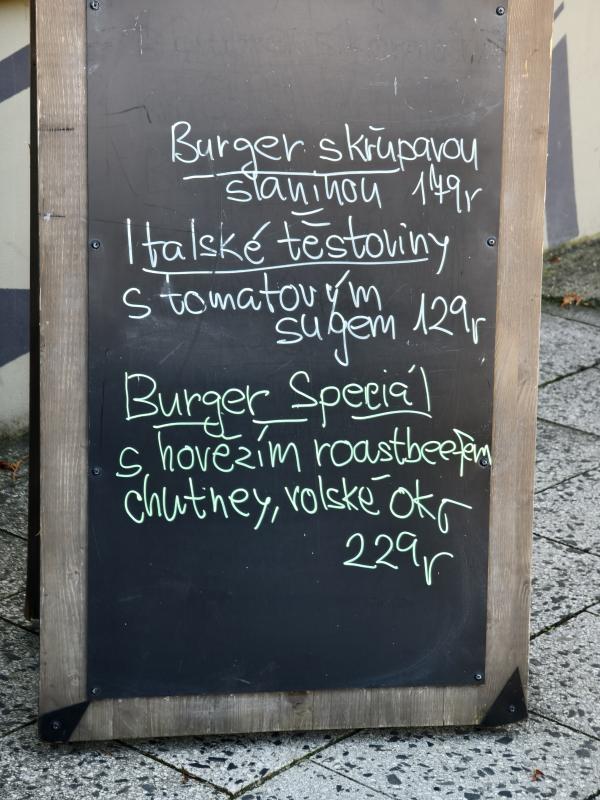 Burger s křupavou
slaninou 179,-
Italské těstoviny
s tomatovým
sugem 129,-
Burger Speciál
s hovězím roastbeefem
chutney, volské oko
229,-